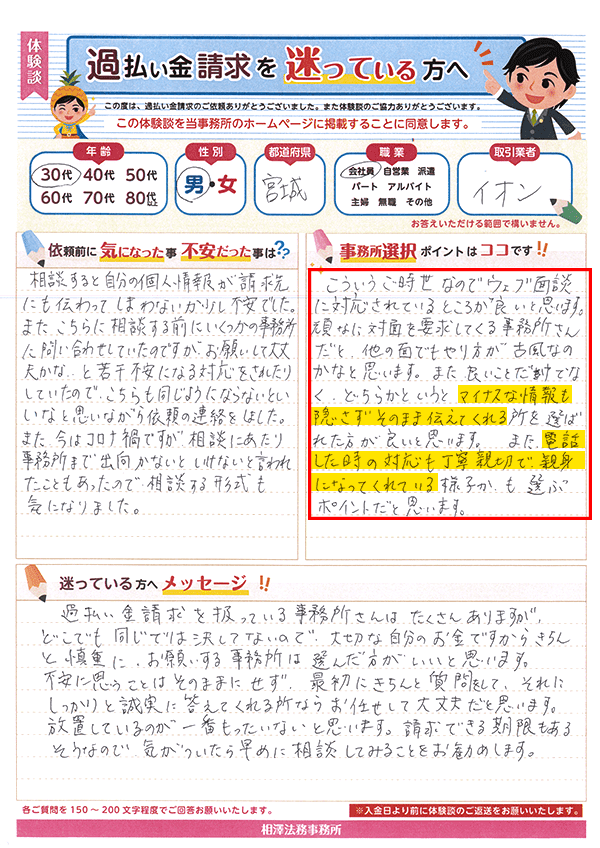 体験談
過払い金請求を迷っている方へ
この度は、過払い金請求のご依頼ありがとうございました。また体験談のご協力ありがとうございます。
この体験談を当事務所のホームページに掲載することに同意します。
年齢
30代 40代 50代
60代 70代 80代以上
性別
男・女
都道府県
宮城
職業
会社員 自営業 派遣
パート アルバイト
主婦 無職 その他
取引業者
イオン
お答えいただける範囲で構いません。
依頼前に気になった事 不安だった事は??
相談すると自分の個人情報が請求先
にも伝わってしまわないか少し不安でした。
また、こちらに相談する前にいくつかの事務所
に問い合わせしていたのですが、お願いして大丈
夫かな、と若干不安になる対応をされたり
していたので、こちらも同じようにならないといい
いなと思いながら依頼の連絡をしました。
また、今はコロナ禍ですが相談にあたり
事務所まで出向かないといけないと言われ
たこともあったので、相談する形式も
気になりました。
事務所選択ポイントはココです!!
こういうご時世なのでウェブ面談
に対応されているところが良いと思います。
頑なに対面を要求してくる事務所さん
だと、他の面でもやり方が古風なの
かなと思います。また良いことだけでな
く、どちらかというとマイナスな情報も
隠さずそのまま伝えてくれる所を選ば
れた方が良いと思います。また、電話
した時の対応も丁寧親切で、親身
になってくれている様子か、も選ぶ
ポイントだと思います。
迷っている方へメッセージ!!
過払い金請求を扱っている事務所さんはたくさんありますが、
どこでも同じでは決してないので、大切な自分のお金ですからきちん
と慎重に、お願いする事務所は選んだ方がいいと思います。
不安に思うことはそのままにせず、最初にきちんと質問をして、それに
しっかりと誠実に答えてくれる所ならお任せして大丈夫だと思います。
放置しているのが一番もったいないと思います。請求できる期限もある
そうなので、気がついたら早めに相談してみることをお勧めします。
各ご質問を150～200文字程度でご回答お願いいたします。
※入金日より前に体験談のご返送をお願いいたします。
相澤法務事務所